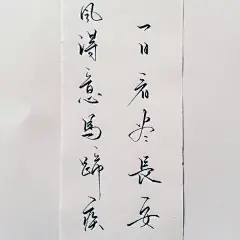 風得意馬蹄疾
一日看尽長安